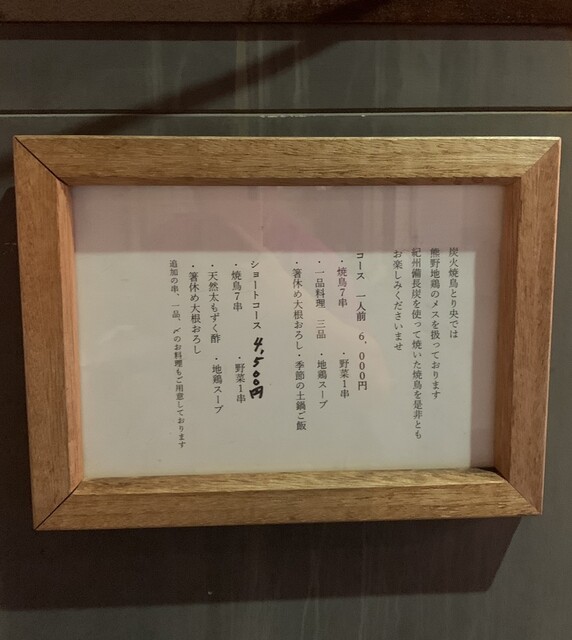 炭火焼鳥とり央では
熊野地鶏のメスを扱っております
紀州備長炭を使って焼いた焼鳥を是非とも
お楽しみくださいませ
コース 一人前 6，000円
・焼鳥7串 ・野菜1串
・一品料理 三品 ・地鶏スープ
・箸休め大根おろし・季節の土鍋ご飯
ショートコース 4,500円
・焼鳥7串 ・野菜1串
・天然太もずく酢 ・地鶏スープ
・箸休め大根おろし
追加の串、一品、〆のお料理もご用意しております